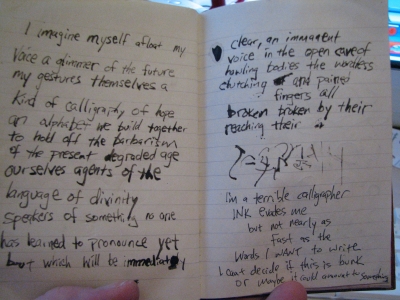 I imagine myself afloat my
voice a glimmer of the future
my gestures themselves a
kind of calligraphy of hope
an alphabet we build together
to hold off the barbarism
of the present degraded age
ourselves agents of the
language of divinity
speakers of something no one
has learned to pronounce yet
but which will be immediately
clear, an immanent
voice in the open cave of
howling bodies the wordless
clutching and pained
fingers all
broken broken by their
reaching their
i'm a terrible calligrapher
INK evades me
but not nearly as
fast as the
words I WANT to write
I can't decide if this is bunk
or maybe it could amount to something